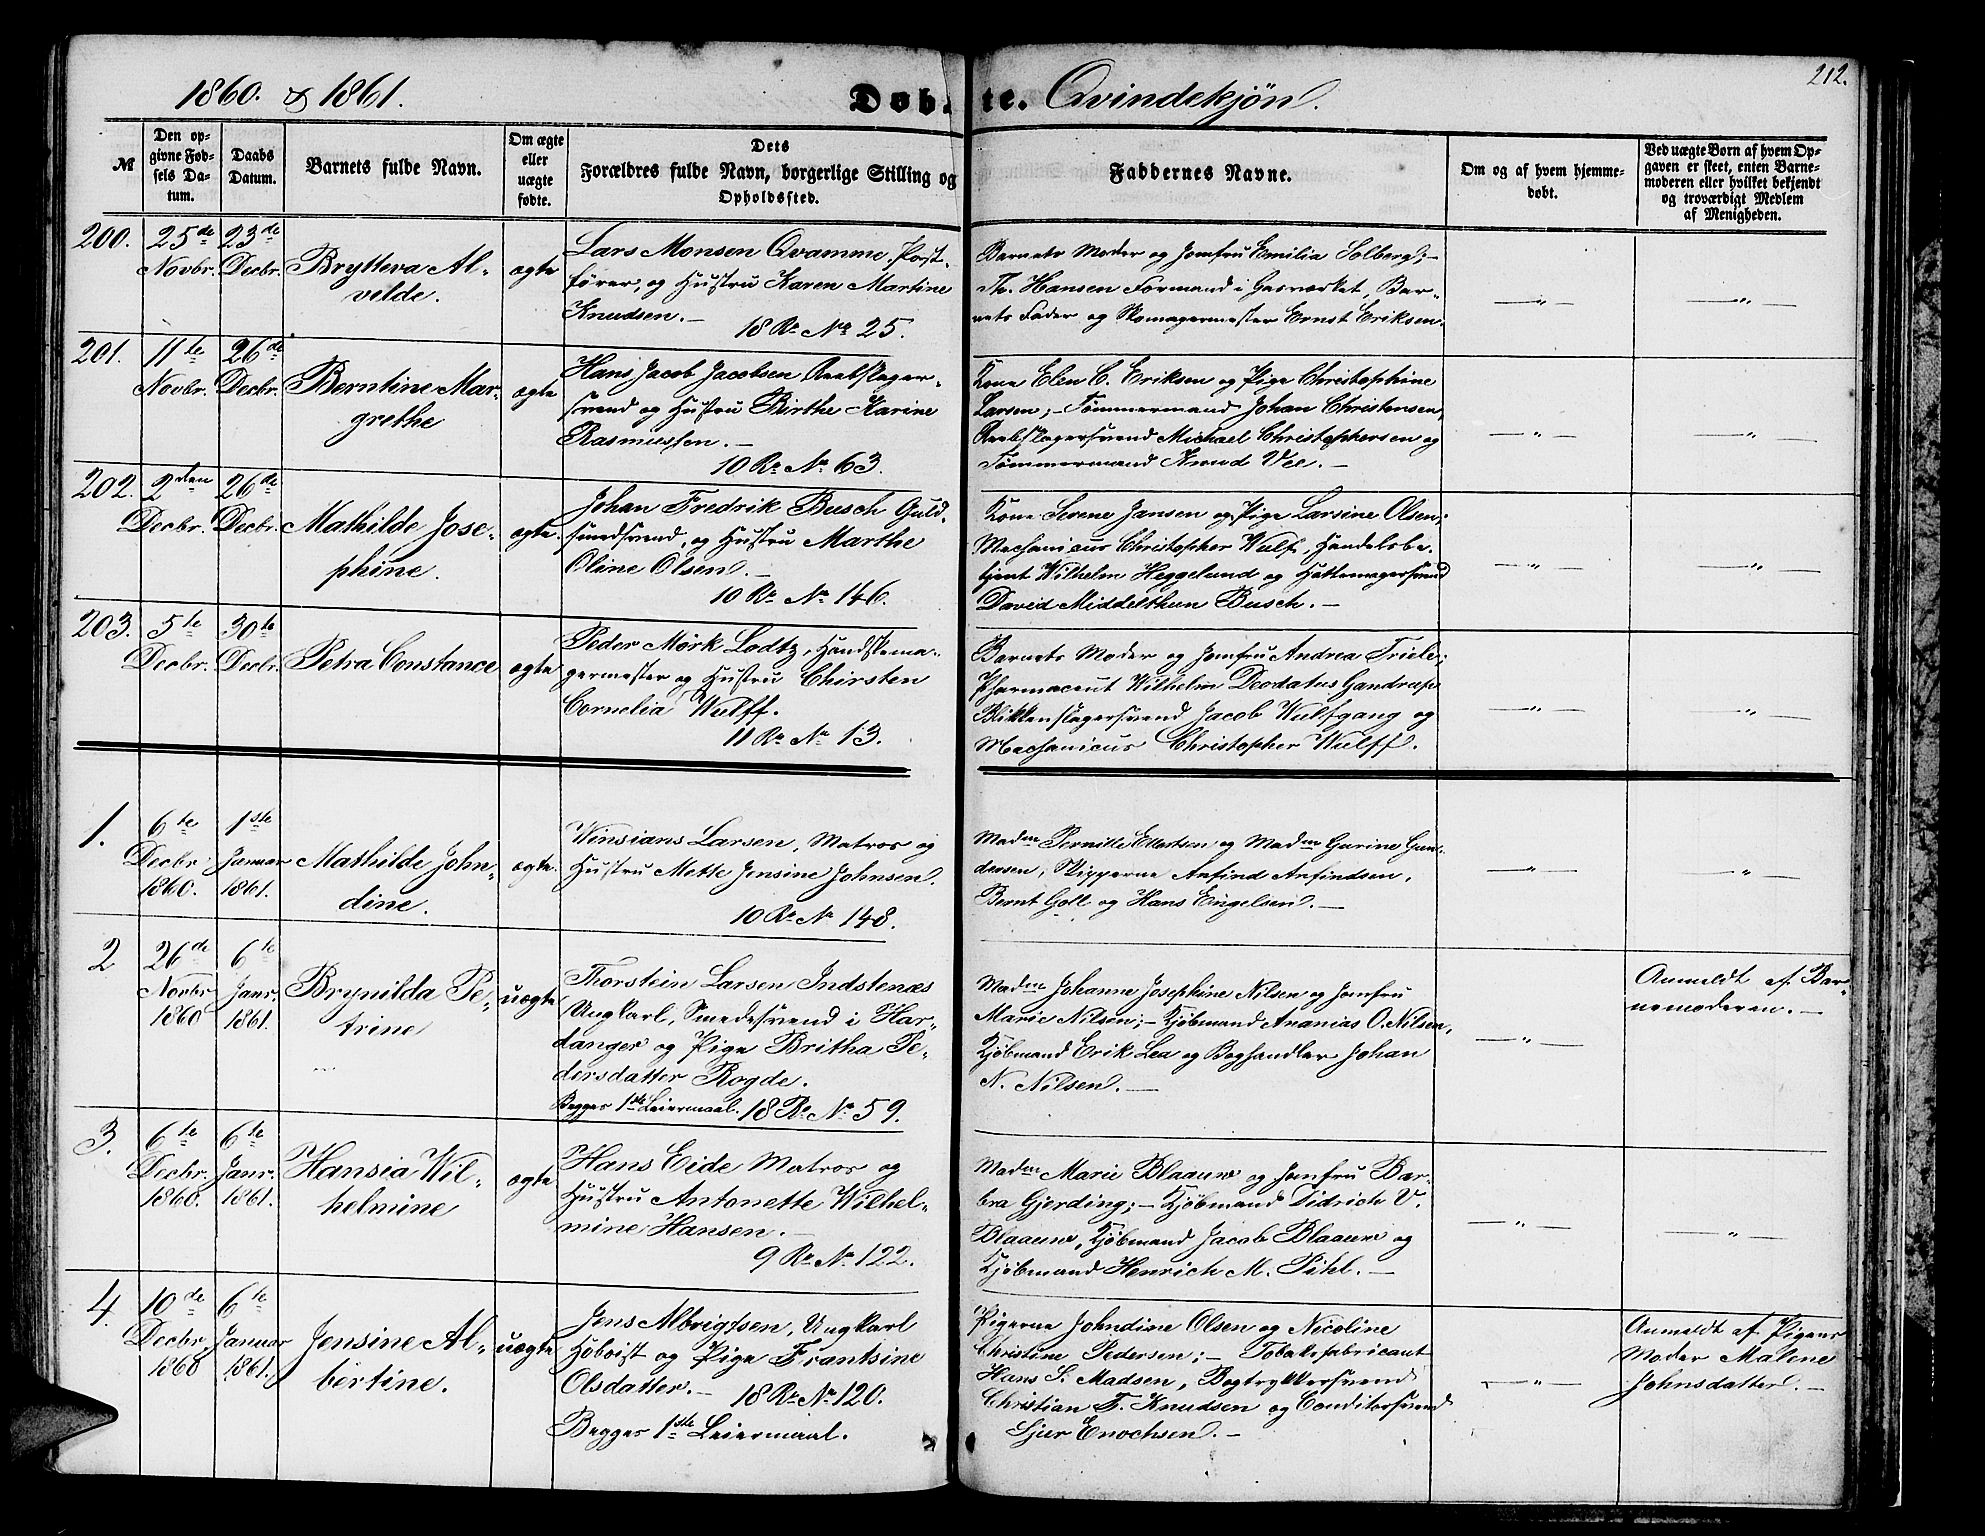 1860. & 1861.
Døbte. Qvindekjøn.
212.
№
Den op-
givne Fød-
sels Da-
tum.
Daabs
Datum.
Barnets fulde Navn.
Om ægte
eller
uægte
fødte.
Dets
Forældres fulde Navn, borgerlige Stilling og
Opholdssted.
Faddernes Navne.
Om og af hvem hjemme-
døbt.
Ved uægte Børn af hvem Op-
gaven er skeet, enten Barne-
moderen eller hvilket bekjendt
og troværdigt Medlem
af Menigheden.
200.
25de
Novbr.
23de
Decbr.
Brytteva Al-
velde.
ægte
Lars Monsen Qvamme, Post-
fører, og Hustru Karen Martine
Knudsen. –
18 R. No 25.
Barnets Moder og Jomfru Emilia Solberg; –
Th. Hansen Formand i Gasværket, Bar-
nets Fader og Skomagermester Ernst Eriksen.
— " —
— " —
201.
11te
Novbr.
26de
Decbr.
Berntine Mar-
grethe
ægte
Hans Jacob Jacobsen Reebslager-
svend og Hustru Birthe Karine
Rasmussen. –
10 R. No 63.
Kone Elen C. Eriksen og Pige Christophine
Larsen; – Tømmermand Johan Christensen,
Reebslagersvend Michael Christophersen og
Tømmermand Knud Vee. –
— " —
— " —
202.
2den
Decbr.
26de
Decbr.
Mathilde Jose-
phine.
ægte.
Johan Fredrik Busch Guld-
smedsvend, og Hustru Marthe
Oline Olsen. –
10 R. No 146.
Kone Serene Jansen og Pige Larsine Olsen;
Mechanicus Christopher Wulf, Handelsbe-
tjent Wilhelm Heggelund og Hattemagersvend
David Middelthun Busch. –
— " —
— " —
203.
5te
Decbr.
30te
Decbr.
Petra Constance
ægte
Peder Mørk Lodtz, Handskema-
germester og Hustru Chirsten
Cornelia Wulff.
11 R. No 13.
Barnets Moder og Jomfru Andrea Triele;
Pharmaceut Wilhelm Deodatus Gandrup
Blikkenslagersvend Jacob Wulfgang og
Mechanicus Christopher Wulff.
— " —
— " —
1.
6te
Decbr.
1860.
1ste
Januar
1861.
Mathilde John-
dine.
ægte.
Winsians Larsen, Matros og
Hustru Mette Jensine Johnsen.
10 R. No 148.
Madme Pernille Ellertsen og Madme Gurine Gun-
dersen, Skipperne Anfind Anfindsen,
Bernt Goll og Hans Engelsen. –
— " —
— " —
2
26de
Novbr
1860
6te
Janr.
1861.
Brynilda Pe-
trine
uægte
Thorstein Larsen Indstenæs
Ungkarl, Smedesvend i Har-
danger og Pige Britha Pe-
dersdatter Rogde.
Begges 1ste Leiermaal. 18 R. No 59.
Madme Johanne Josephine Nilsen og Jomfru
Marie Nilsen; – Kjøbmand Ananias O. Nilsen,
Kjøbmand Erik Lea og Boghandler Johan
N. Nilsen. –
— " —
Anmeldt af Bar-
nemoderen. –
3.
6te
Decbr.
1860.
6te
Janr.
1861.
Hansia Wil-
helmine
ægte
Hans Eide Matros og
Hustru Antonette Wilhel-
mine Hansen. –
9 R. No 122.
Madme Marie Blaauw og Jomfru Bar-
bra Gjerding; – Kjøbmand Didrich V.
Blaauw, Kjøbmand Jacob Blaauw og
Kjøbmand Henrich M. Pihl. –
— " —
— " —
4.
10de
Decbr.
1860
6te
Januar
1861.
Jensine Al-
bertine.
uægte
Jens Albrigtsen, Ungkarl
Hoboist og Pige Frantsine
Olsdatter. – 18 R. No 120.
Begges 1ste Leiermaal.
Pigerne Johndine Olsen og Nicoline
Christine Pedersen; – Tobaksfabricant
Hans S. Madsen, Bogtrykkersvend
Christian F. Knudsen og Conditorsvend
Sjur Enochsen. –
— " —
Anmeldt af Pigens
Moder Malene
Johnsdatter. –